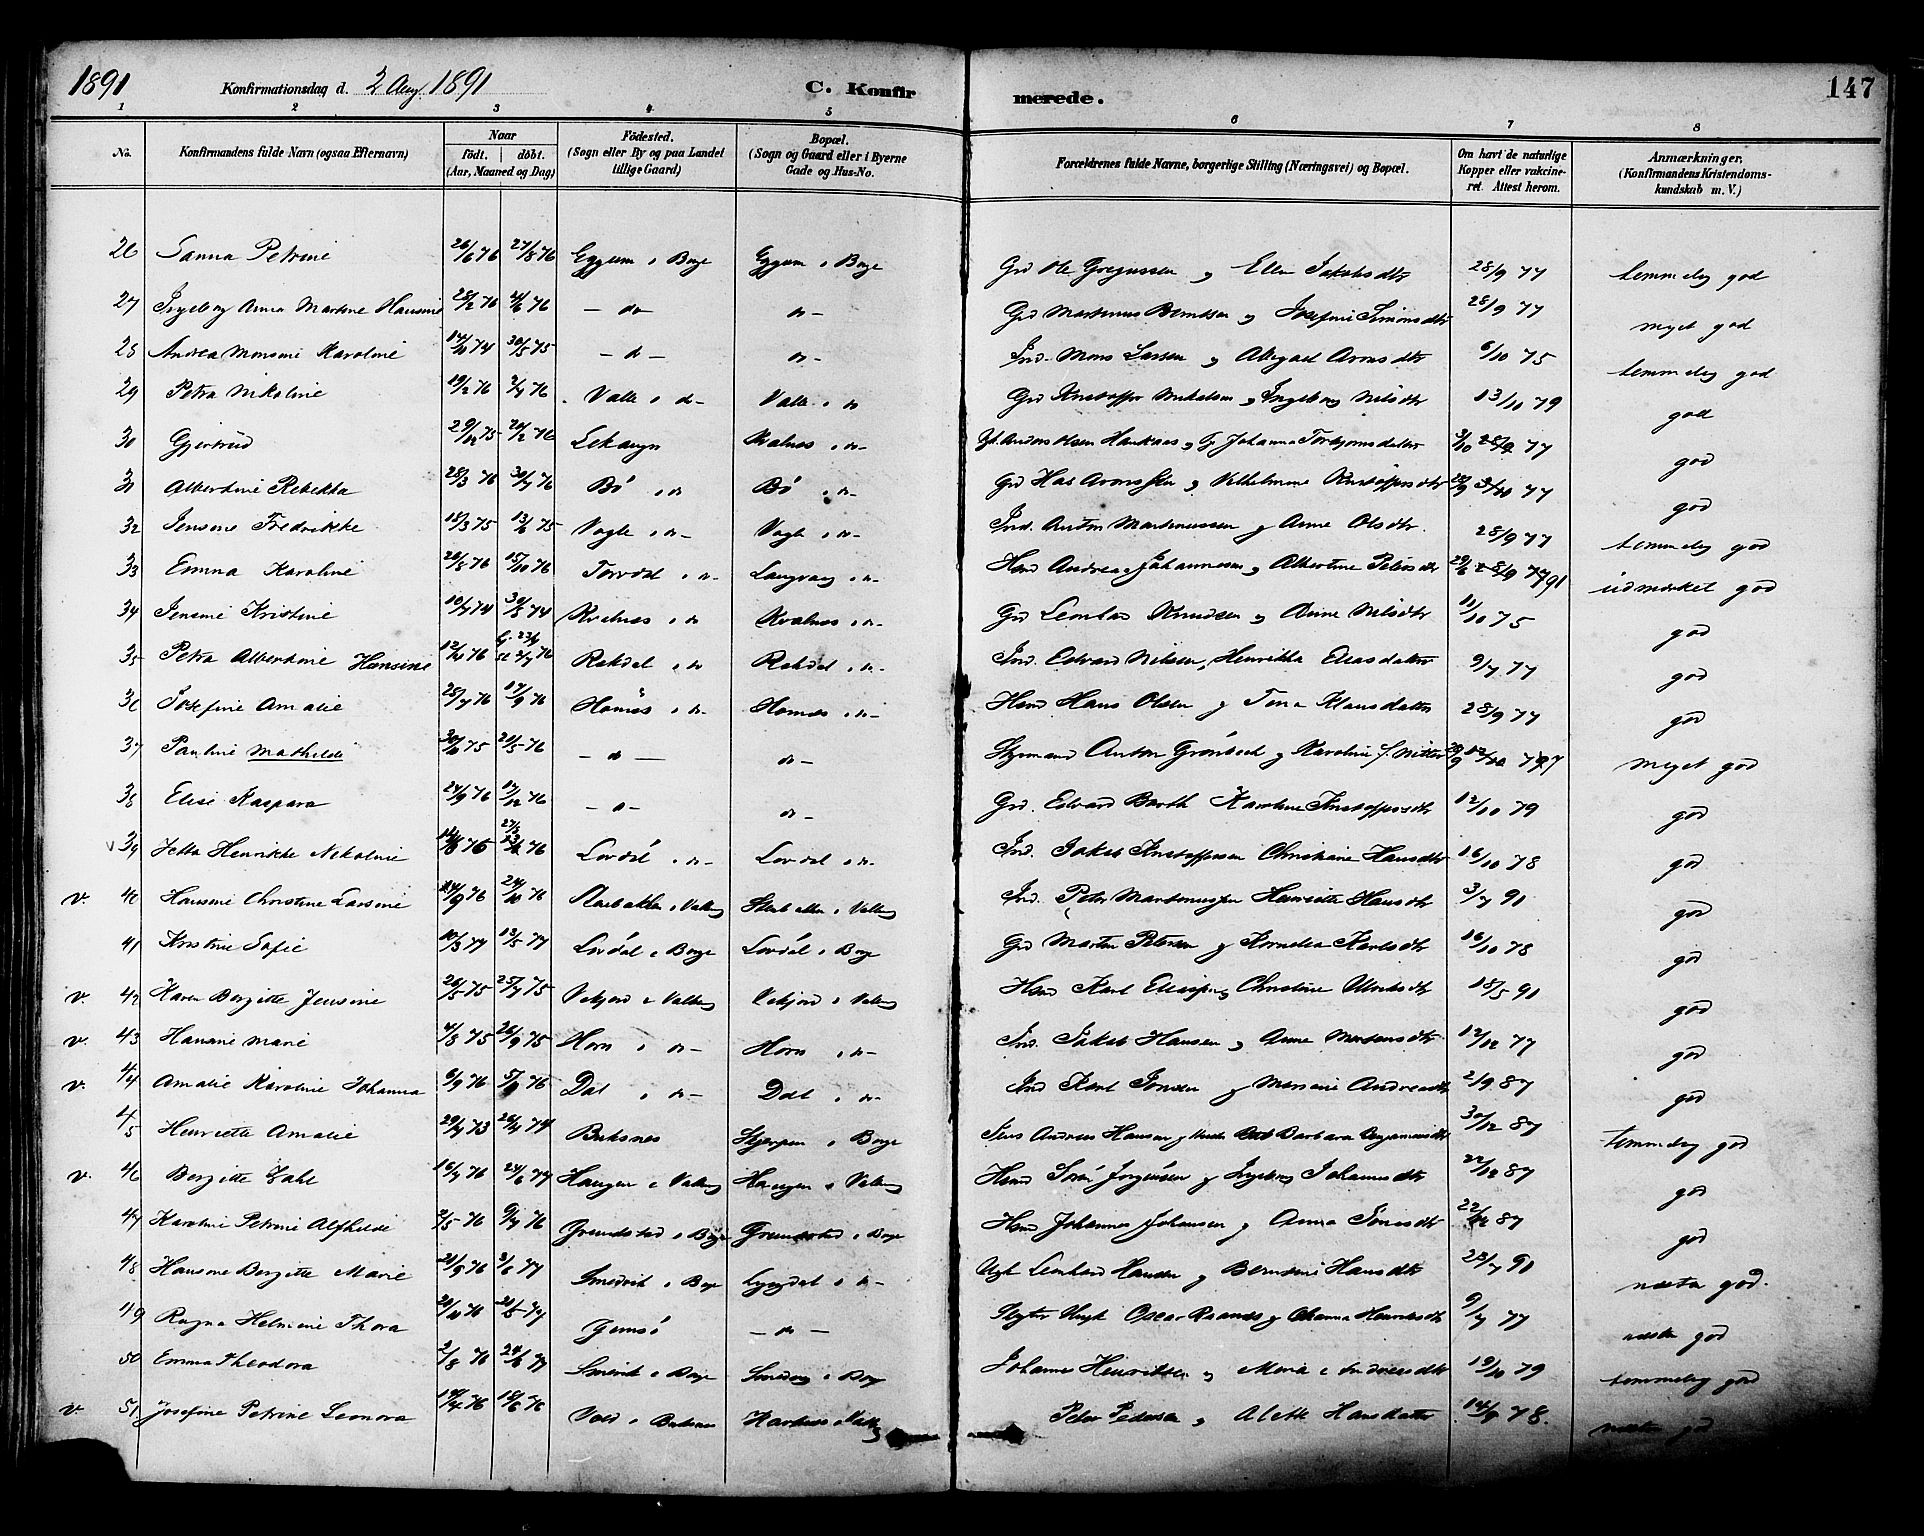 1891 Konfirmationsdag d. 2 Aug. 1891 C. Konfirmerede. 147
1 2 3 4 5 6 7 8
No. Konfirmandens fulde Navn (ogsaa Efternavn) Naar født. døbt. (Aar, Maaned og Dag) Fødested. (Sogn eller By og paa Landet tillige Gaard) Bopæl. (Sogn og Gaard eller i Byerne Gade og Hus-No. Forældrenes fulde Navne, borgerlige Stilling (Næringsvei) og Bopæl. Om havt de naturlige Kopper eller vakcineret. Attest herom. Anmærkninger, (Konfirmandens Kristendomskundskab m. V.)
26 Sanna Petrine 26/6 76 27/8 76 Eggum i Borge Eggum i Borge Grd Ole Gregussen og Ellen Jakobsdtr 28/9 77 temmelig god
27 Ingeborg Anna Martine Hansine 28/2 76 4/6 76 - do - do - Grd Martinus Berntsen og Josefine Simonsdtr 28/9 77 meget god
28 Andrea Monsine Karoline 14/10 74 30/5 75 - do - do - Ind. Mons Larsen og Abigael Aronsdtr 6/10 75 temmelig god
29 Petra Nikoline 19/2 76 2/7 76 Valle i do - Valle i do Grd Kristoffer Mikalsen og Ingeborg Nilsdtr 13/10 79 god
30 Gjertrud 29/12 75 20/2 76 Kvalnes i do - Anders Olsen Hauknes og Johanna Torbjørnsdatter 3/10 28/9 77 god
31 Albertine Rebekka 28/3 76 30/7 76 Bö i do Bö i do - Grd Aronssen og Vilhelmine Kristoffersdtr 77 god
32 Jensine Fredrikke 18/3 75 13/6 75 Vagle i do - Vagle i do - Ind. Anton Martinussen og Anne Olsdtr. 28/9 77 temmelig god
33 Emma Karoline 20/8 76 15/10 76 Torvdal i do - Langvag i do - Hmd Andreas Johannesen og Albertine Petersdtr 29/6 28/9 77 91 udmærket god
34 Jensine Kristine 10/7 74 30/8 74 Kvalnes i do - Kvalnes i do - Grd Leonhard Knudsen og Anne Nilsdtr 11/10 75 god
35 Petra Albertine Hansine 12/10 76 76 Rekdal i do Rekdal i do - Ind. Edvard Nilsen, Henrikka Eliasdatter 9/7 77 god
36 Josefine Amalie 28/7 76 17/9 76 Homnes i do - Homnes i do - Hmd Hans Olsen og Tona Klausdatter 28/9 77 god
37 Pauline Mathilde 30/10 75 21/5 76 - do - do - Styrmand Anton Grönbech og Karoline f. Nitter 77 meget god
38 Elise Kaspara 24/9 76 17/12 76 - do - do - Grd. Edvard Barth Karoline Kristoffersdtr 12/10 79 god
39 Jetta Henrikke Nikoline 76 76 Lovdal i do - Lovdal i do - Ind. Jakob Kristoffersen Christiane Hansdtr 16/10 78 god
v. 40 Hansine Christine Larsine 76 24/10 76 i Valberg i Valberg Ind. Peter Martinussen Henriette Hansdtr 3/7 91 god
41 Kristine Sofie 10/3 77 13/5 77 Lovdal i Borge Lovdal i Borge Grd Martin Petersen og Kornelia Karlsdtr 16/10 78 god
v. 42 Karen Bergitte Jensine 26/5 75 25/7 75 Vekjord i Valberg Vekjord i Valberg Hmd Karl Eliassen og Christine Ulriksdtr 18/5 91 god
v. 43 Hansine Marie 4/8 75 26/9 75 Horn i do - Horn i do - Ind. Jakob Hansen og Anne Mortensdtr 12/12 77 god
v. 44 Amalie Karoline Johanna 6/9 76 Dal i do - Dal i do - Ind Karl Jonsen og Marine Andreasdtr 2/9 87 god
45 Henriette Amalie 73 74 Buksnes Skjerpen i Borge Jens Andreas Hansen og Barbara Benjaminsdtr 30/12 87 temmelig god
v. 46 Bergitte Zahl 16/7 76 24/6 77 Haugen i Valberg Haugen i Valberg Hmd Sören Jørgensen og Ingeborg Johannesdtr 22/12 87 god
47 Karoline Petrine Alfhilde 2/5 76 9/7 76 Grundstad i Borge Grundstad i Borge Hmd Johannes Johansen og Anna Jonasdtr 22/12 87 god
48 Hansine Bergitte Marie 21/9 76 3/6 77 Smedvik i Borge Lyngdal i do - Ungk Leonhard Hansen og Berntine Hansdtr 23/7 91 næsten god.
49 Ragna Helmine Thora 20/11 76 77 Gimsö - do - Ungk Oscar Raanes og Johanna Henriksdtr 9/7 77 næsten god
50 Emma Theodora 2/8 76 24/6 77 Smevik i Borge i Borge Johannes Henriksen og Andreasdtr 19/10 79 temmelig god
v. 51. Josefine Petrine Leonora 76 18/6 76 Vold i Buksnes Peter Pedersen og Alette Hansdatter 14/9 78. næsten god